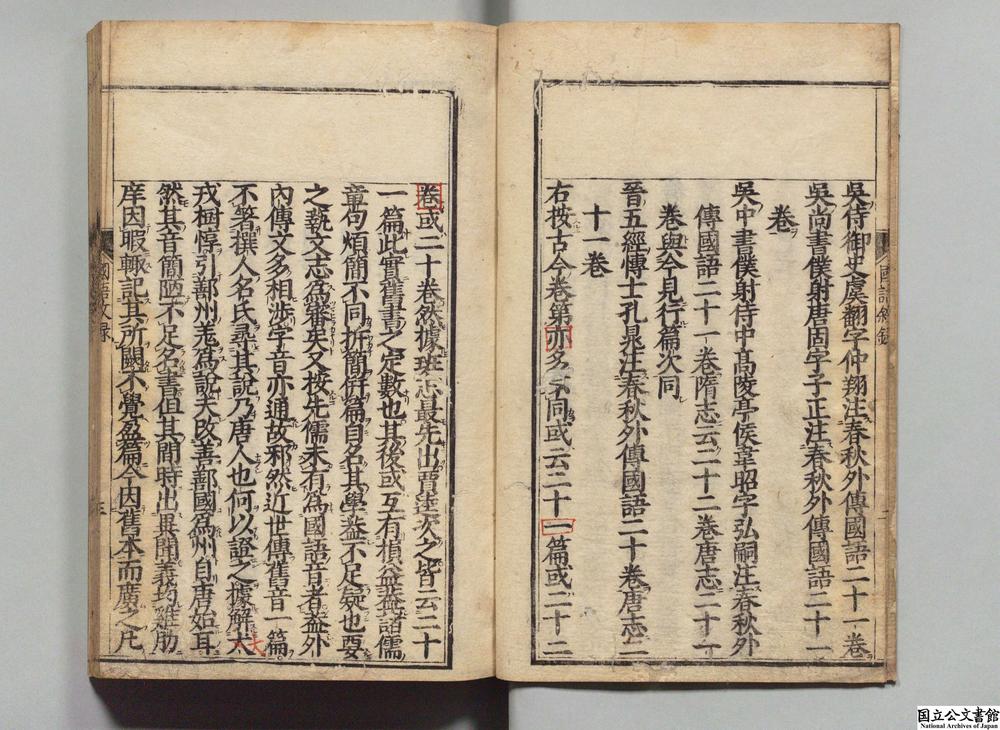 吳侍御史虞翻字仲翔注春秋外傳國語二十一卷
吳尚書僕射唐固字子正注春秋外傳國語二十一
卷
吳中書僕射侍中高陵亭侯韋昭字弘嗣注春秋外
傳國語二十一卷隋志云二十二卷唐志二十一
卷與今見行篇次同
晉五經博士孔晁注春秋外傳國語二十卷唐志二
十一卷
右按古今卷第亦多不同或云二十一篇或二十二
卷或二十卷然據班志最先出賈逵次之皆云二十
一篇此實舊書之定數也其後或互有損益蓋諸儒
章句煩簡不同折簡併篇自名其學蓋不足疑也要
之藝文志為審矣又按先儒未有為國語音者蓋外
內傳文多相涉字音亦通故邪然近世傳舊音一篇
不著撰人名氏尋其說乃唐人也何以證之據解犬
戎樹惇引鄯州羌為說夫改善鄯國為州自唐始耳
然其音簡陋不足名書但其間時出異聞義均雞肋
庠因暇輒記其所闕不覺盈篇今因舊本而廣之凡
國語敘錄
二
國語敘錄
三
国立公文書館
National Archives of Japan